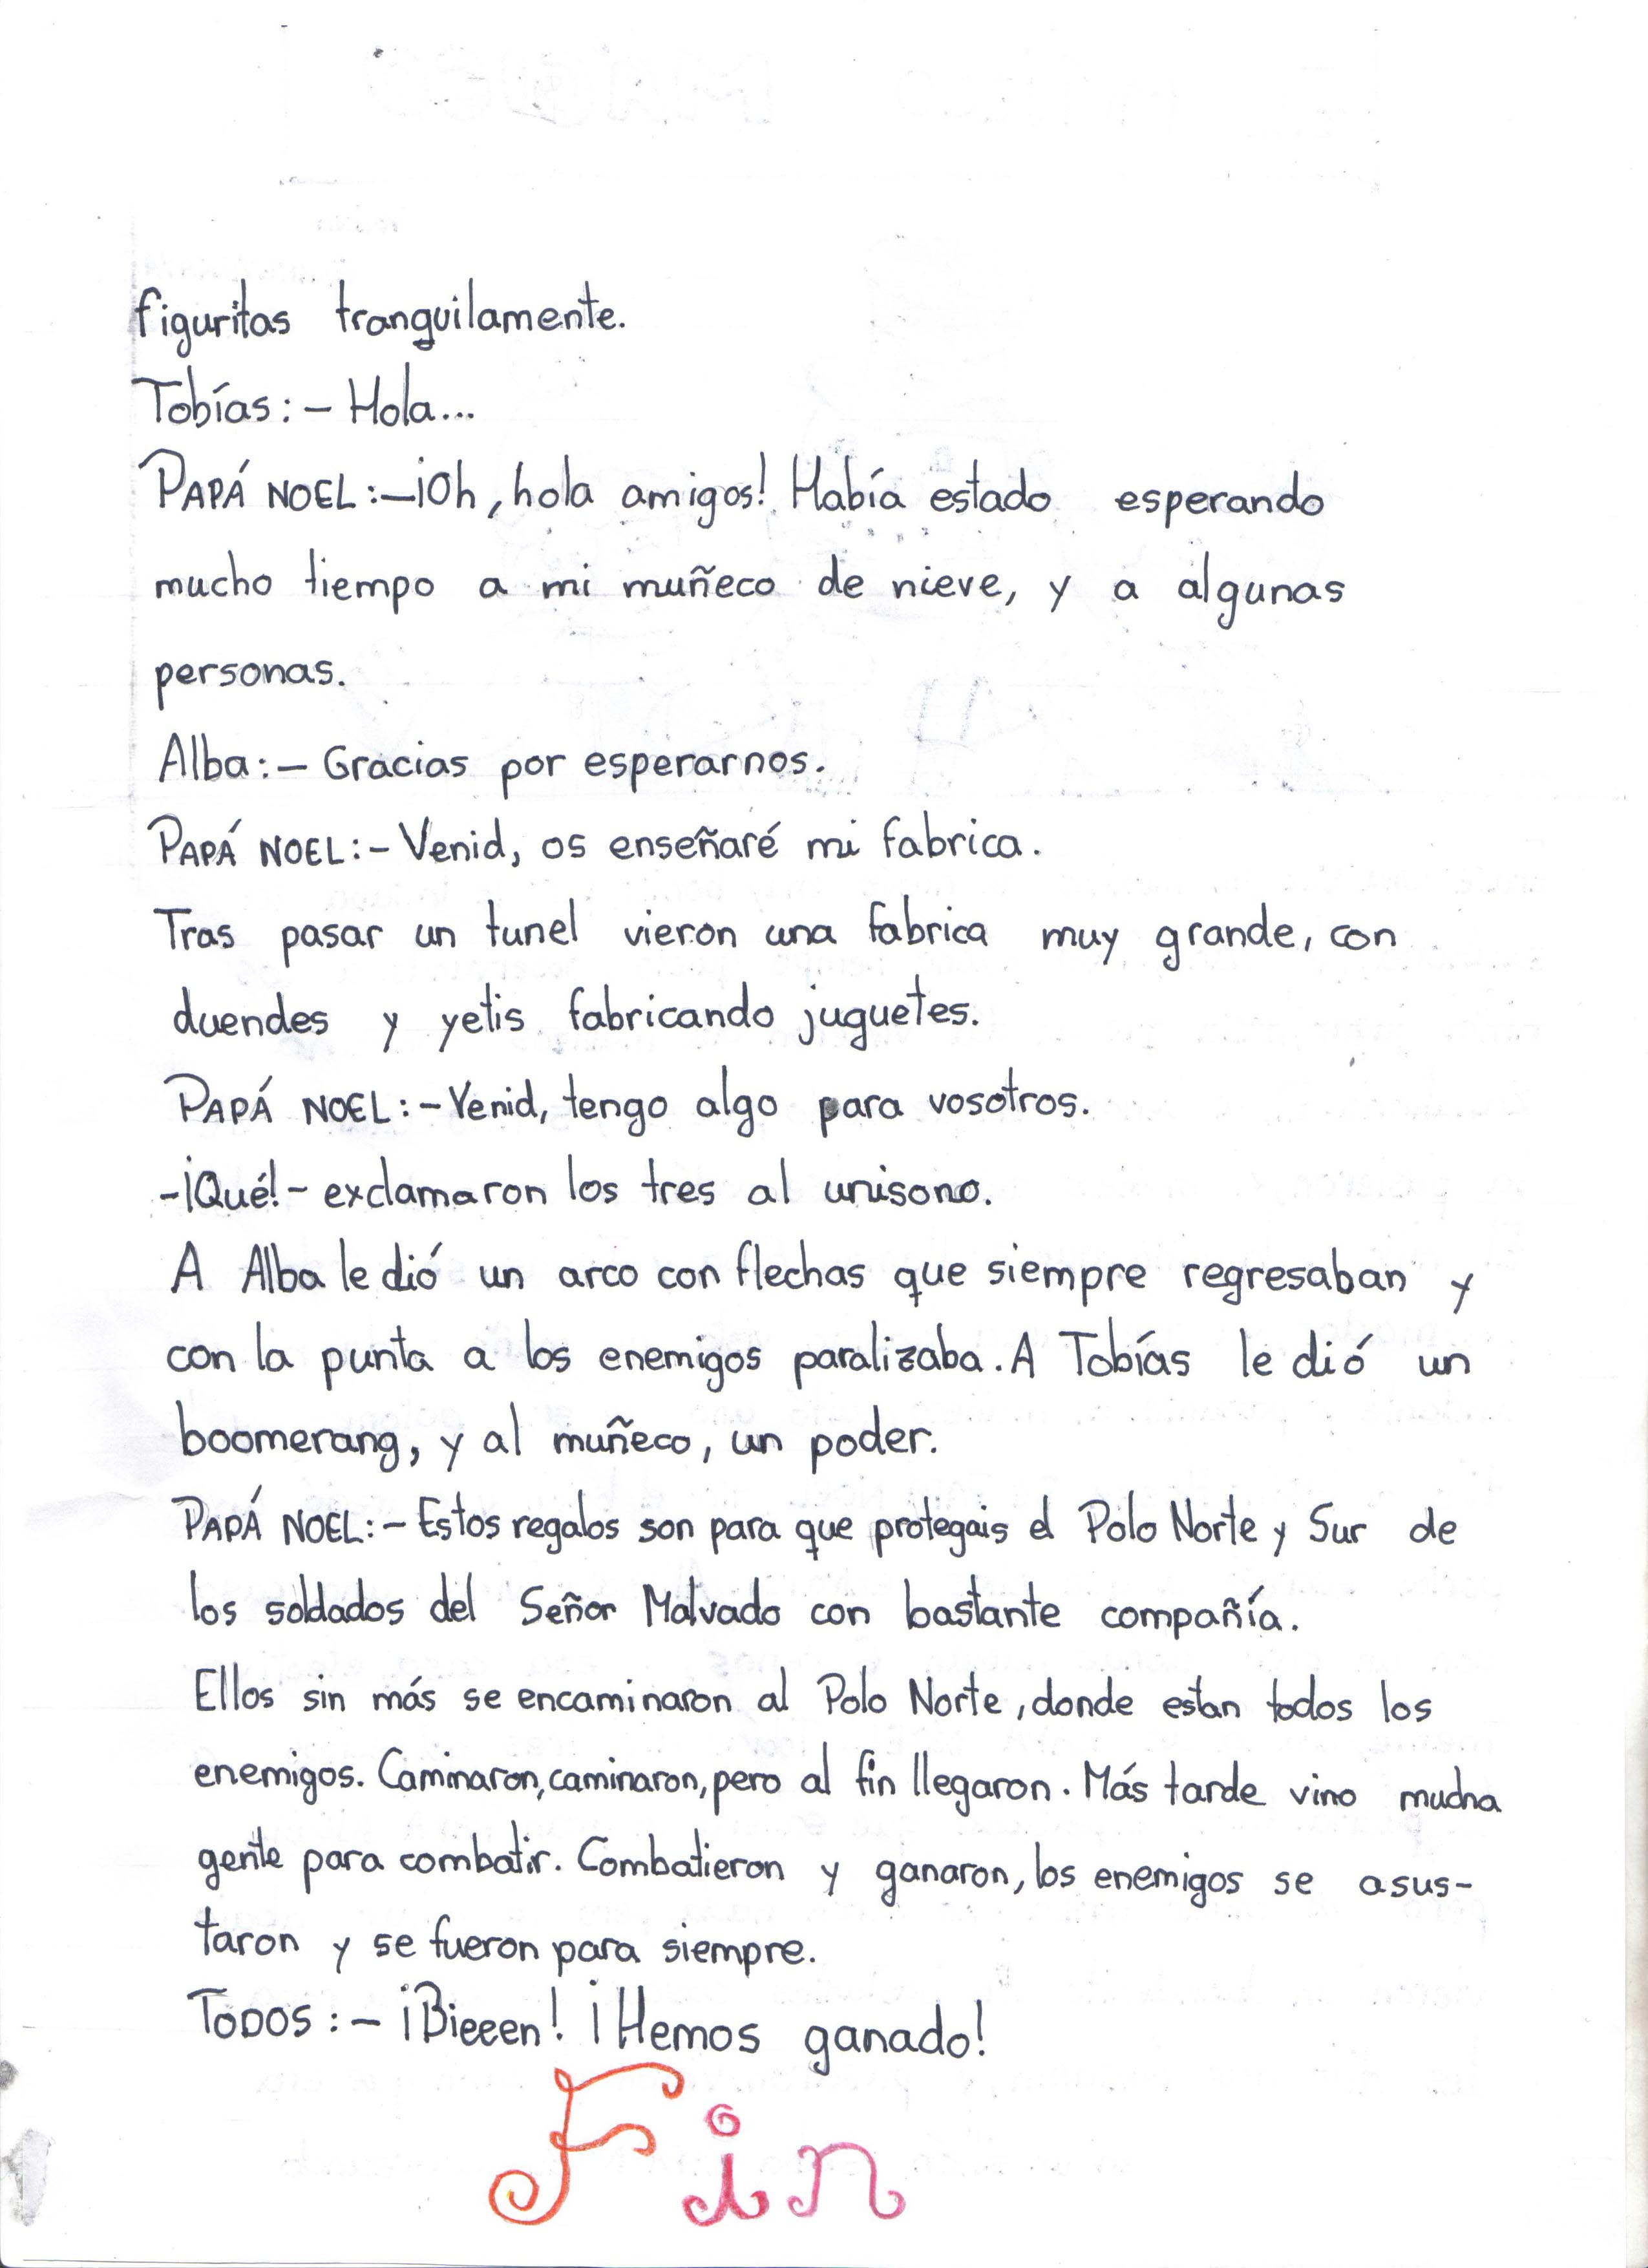 figuritas tranquilamente.
Tobías:– Hola...
PAPÁ NOEL:–¡Oh, hola amigos! Había estado esperando
mucho tiempo a mi muñeco de nieve, y a algunas
personas.
Alba:– Gracias por esperarnos.
PAPÁ NOEL:– Venid, os enseñaré mi fabrica.
Tras pasar un tunel vieron una fabrica muy grande, con
duendes y yetis fabricando juguetes.
PAPÁ NOEL:– Venid, tengo algo para vosotros.
-¡Qué!- exclamaron los tres al unisono.
A Alba le dió un arco con flechas que siempre regresaban y
con la punta a los enemigos paralizaba. A Tobías le dió un
boomerang, y al muñeco, un poder.
PAPÁ NOEL:– Estos regalos son para que protegais el Polo Norte y Sur de
los soldados del Señor Malvado con bastante compañía.
Ellos sin más se encaminaron al Polo Norte, donde estan todos los
enemigos. Caminaron, caminaron, pero al fin llegaron. Más tarde vino mucha
gente para combatir. Combatieron y ganaron, los enemigos se asus-
taron y se fueron para siempre.
TODOS:– ¡Bieeen! ¡Hemos ganado!
Fin